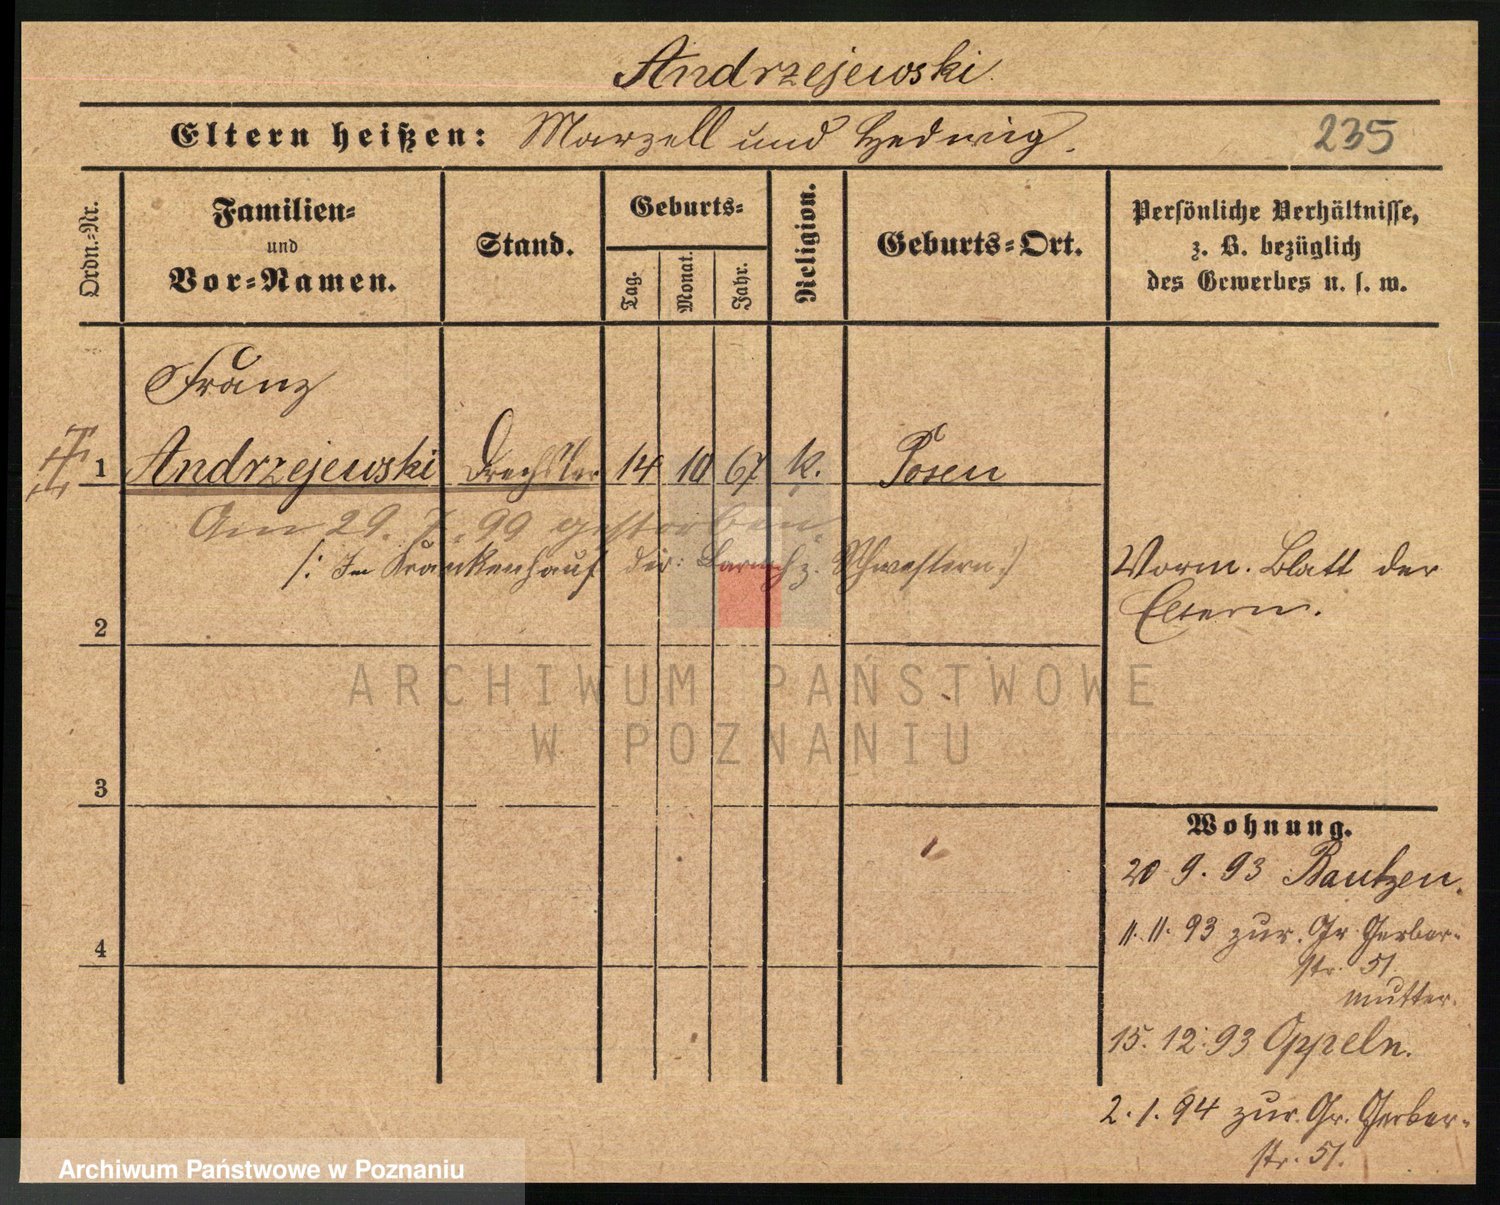 Andrzejewski.
Eltern heißen: Marzell und Hedwig.
235
Ordn.-Nr.
Familien-
und
Vor-Namen.
Stand.
Geburts-
Tag.
Monat.
Jahr.
Religion.
Geburts-Ort.
Persönliche Verhältnisse,
z. B. bezüglich
des Gewerbes u. s. w.
Franz
1 Andrzejewski Drechsler 14 10 67 k. Posen
Am 29. 7. 99 gestorben
/: Im Krankenhaus der: Barmhz. Schwestern :/
Vorm. Blatt der
Eltern.
2
3
4
Wohnung.
20 9. 93 Bautzen.
11. 11. 93 zur. Gr Gerber-
str. 51.
mutter.
15. 12. 93 Oppeln.
2. 1. 94 zur. Gr. Gerber-
str. 51.
ARCHIWUM PAŃSTWOWE
W POZNANIU
Archiwum Państwowe w Poznaniu